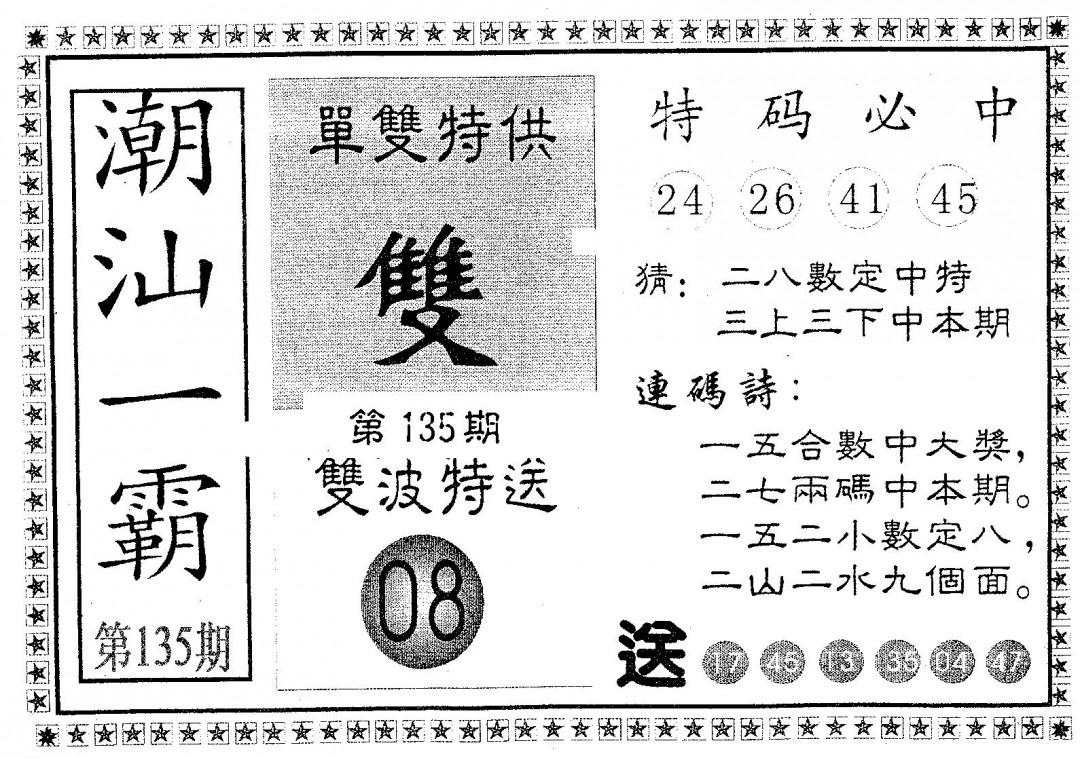 潮汕一霸
第135期
單雙特供
雙
第135期
雙波特送
08
特码必中
24 26 41 45
猜：二八數定中特
三上三下中本期
連碼詩：
一五合數中大獎，
二七兩碼中本期。
一五二小數定八，
二山二水九個面。
送 17 45 13 35 04 47